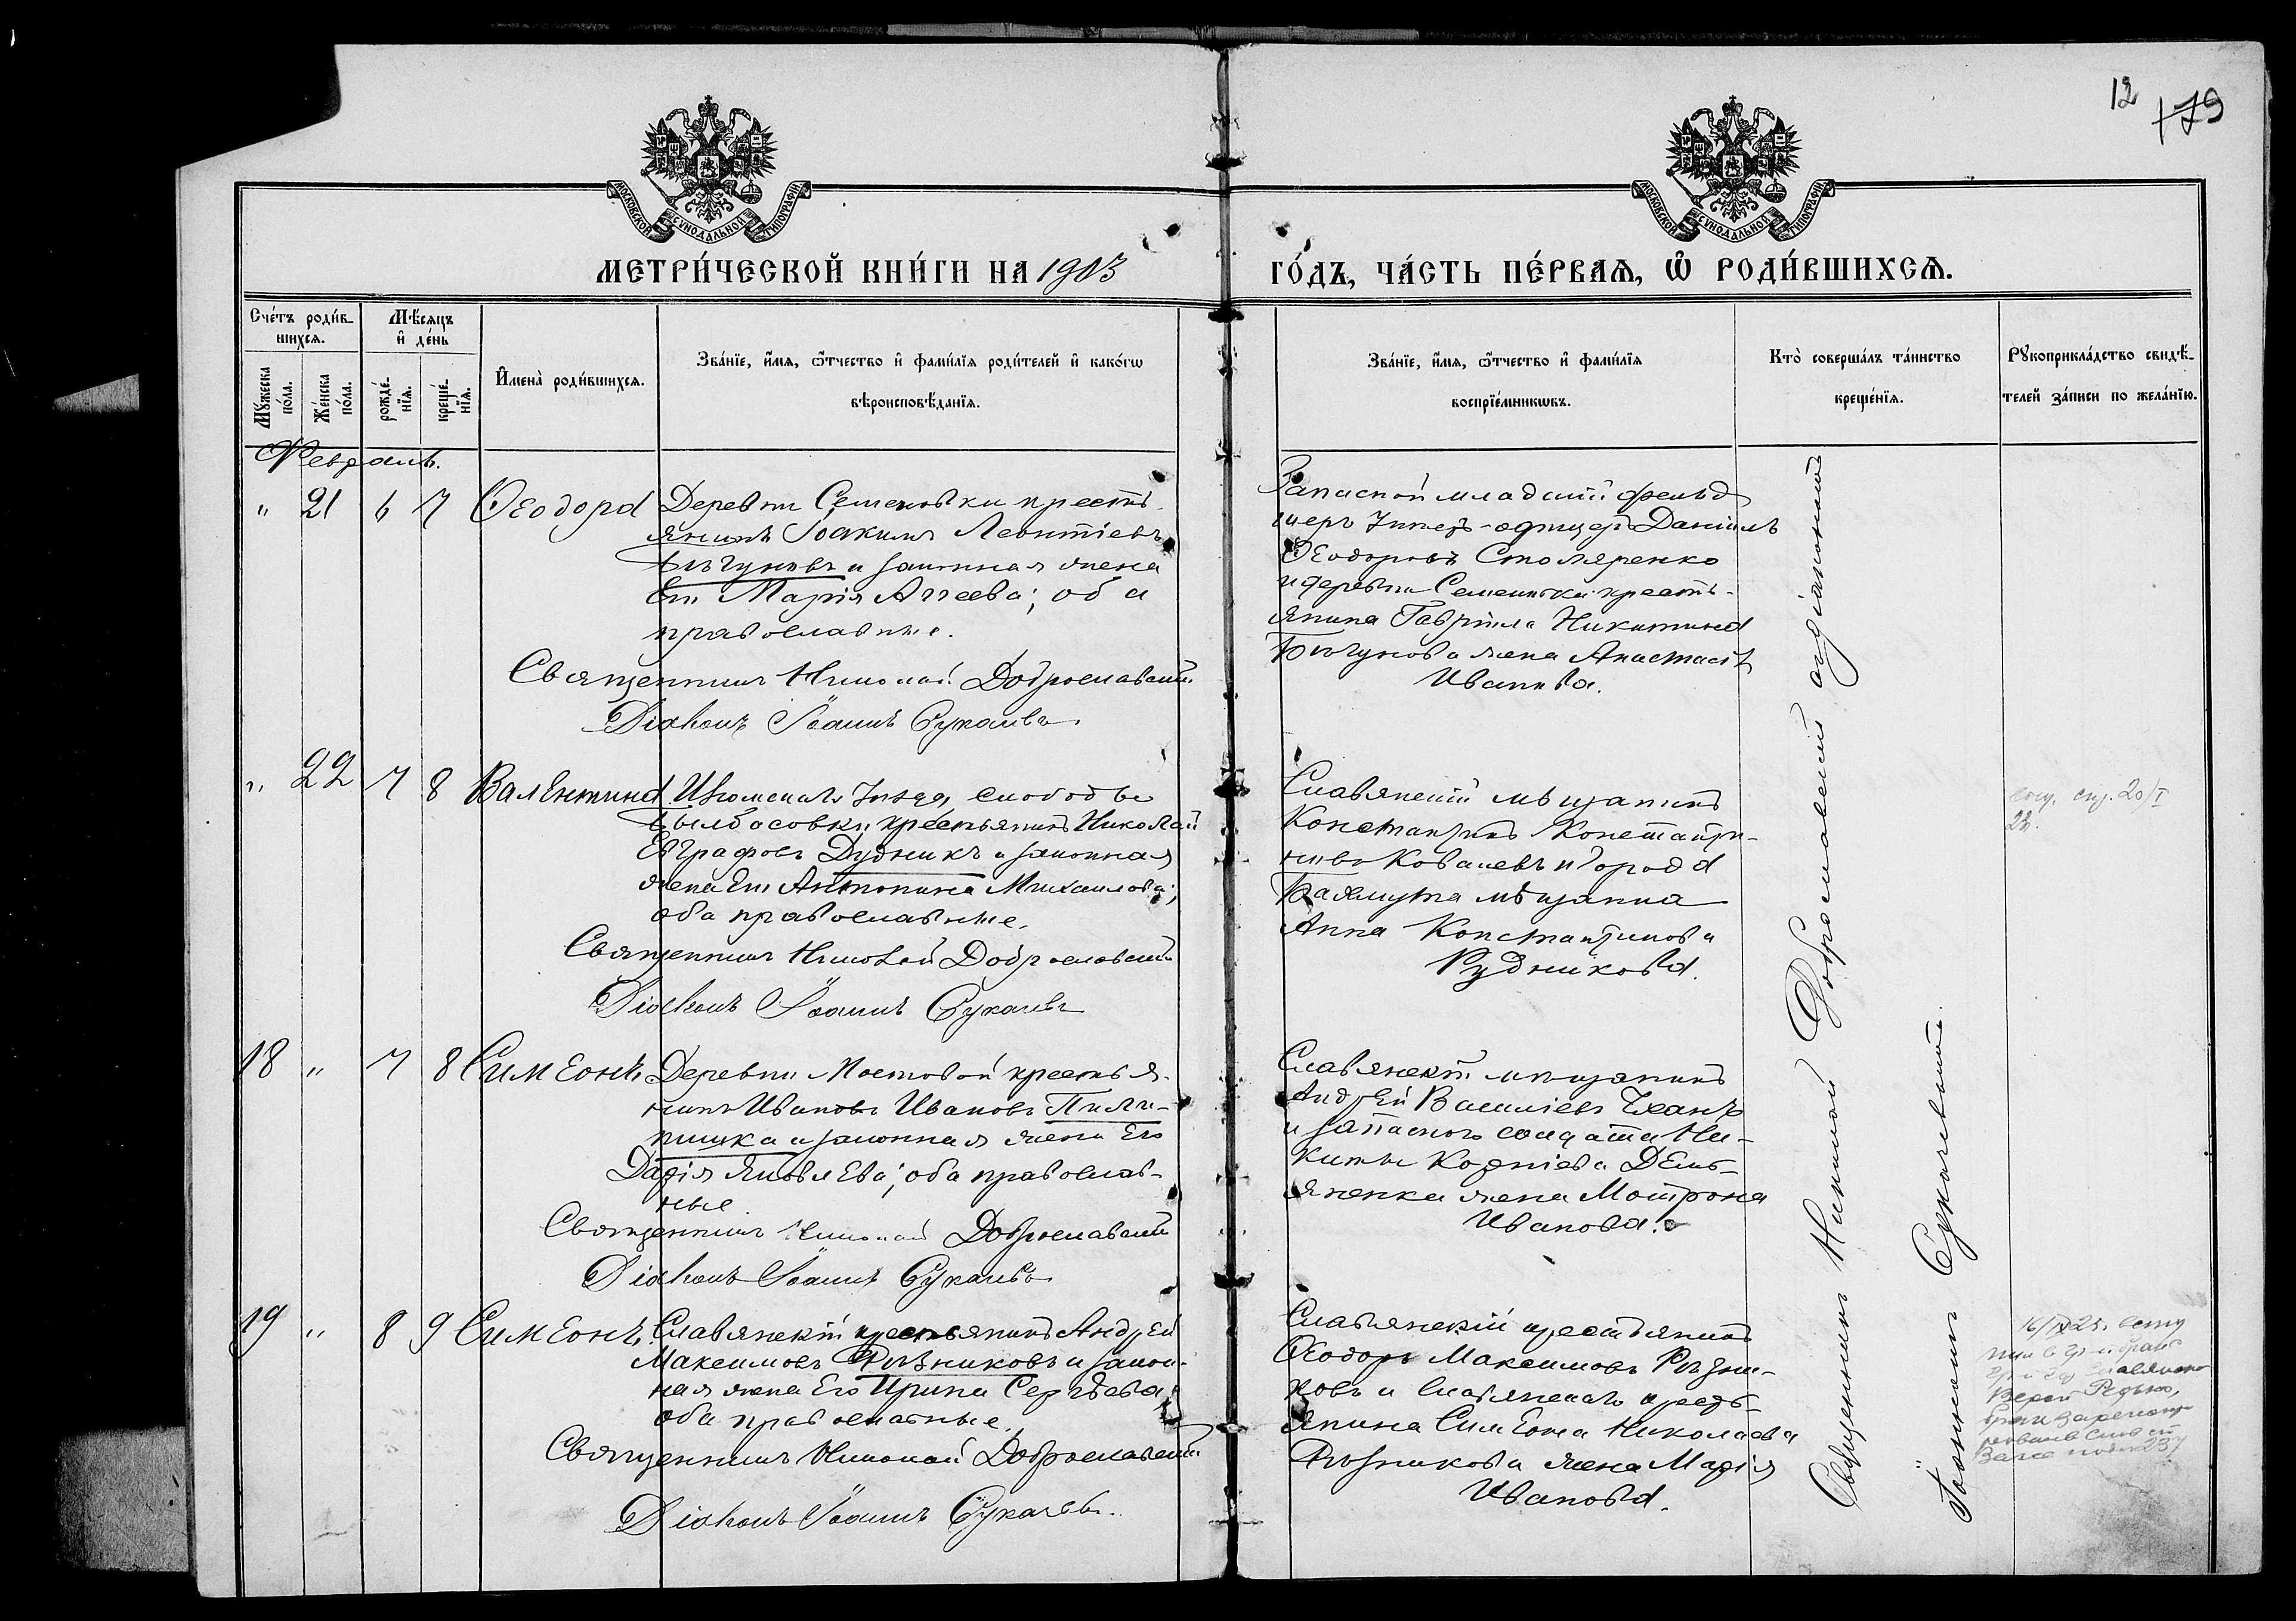 12
179
МЕТРИ́ЧЕСКОЙ КНИ́ГИ НА 1903 ГО́ДЪ, ЧА́СТЬ ПЕ́РВАЯ, Ѽ РОДИ́ВШИХСЯ.
Сче́тъ роди́в-
шихся.
Мѣ́сяцъ
и҆ де́нь
Му́жеска по́ла.
Же́нска по́ла.
рожде́нїя.
креще́нїя.
И҆мена̀ роди́вшихся.
Зва́нїе, и҆́мя, ѻ҆́тчество и҆ фами́лїя роди́телей и҆ како́гѡ
вѣроисповѣ́данїя.
Зва́нїе, и҆́мя, ѻ҆́тчество и҆ фами́лїя
воспрїе́мникѡвъ.
Кто̀ соверша́лъ та́инство
креще́нїя.
Рꙋкоприкла́дство свидѣ́-
телей за́писи по жела́нїю.
Февраль.
" 21 6 7 Ѳеодора
Деревни Семеновки кресть-
янинъ Іоакимъ Леонтіевъ
Бѣгуновъ и законная жена
его Марія Аггеева; оба
православные.
Священникъ Николай Доброславскій
Діаконъ Іоаннъ Сукачевъ
Запасной младшій фельд
шеръ унтеръ-офицеръ Даніилъ
Ѳеодоровъ Столяренко
и деревни Семеновки кресть-
янина Гавріила Никитина
Бѣгунова жена Анастасія
Иванова.
" 22 7 8 Валентина
Изюмскаго уѣзда, слободы
крестьянинъ Николай
Евграфовъ Дудникъ и законная
жена его Антонина Михаилова;
оба православные.
Священникъ Николай Доброславскій
Діаконъ Іоаннъ Сукачевъ
Славянскій мѣщанинъ
Константинъ Константи-
новъ Ковалевъ и города
Бахмута мѣщанка
Анна Константинова
Рудникова.
20/I
18 " 7 8 Симеонъ
Деревни Мостовой крестья-
нинъ Иванъ Ивановъ Пили-
и законная жена его
Дарія Яковлева; оба православ-
ные.
Священникъ Николай Доброславскій
Діаконъ Іоаннъ Сукачевъ
Славянскій мѣщанинъ
Андрей Василіевъ
и запаснаго солдата Ни-
киты Корнієва Демь-
яненка жена Мотрона
Иванова.
19 " 8 9 Симеонъ
Славянскій крестьянинъ Андрей
Максимовъ Рѣзниковъ и закон-
ная жена его Ирина Сергѣева;
оба православные.
Священникъ Николай Доброславскій
Діаконъ Іоаннъ Сукачевъ.
Славянскій крестьянинъ
Ѳеодоръ Максимовъ Рѣзни-
ковъ и Славянскаго кресть-
янина Симеона Николаева
Рѣзникова жена Марія
Иванова.
Священникъ Николай Доброславскій съ діакономъ
Іоанномъ Сукачевымъ.